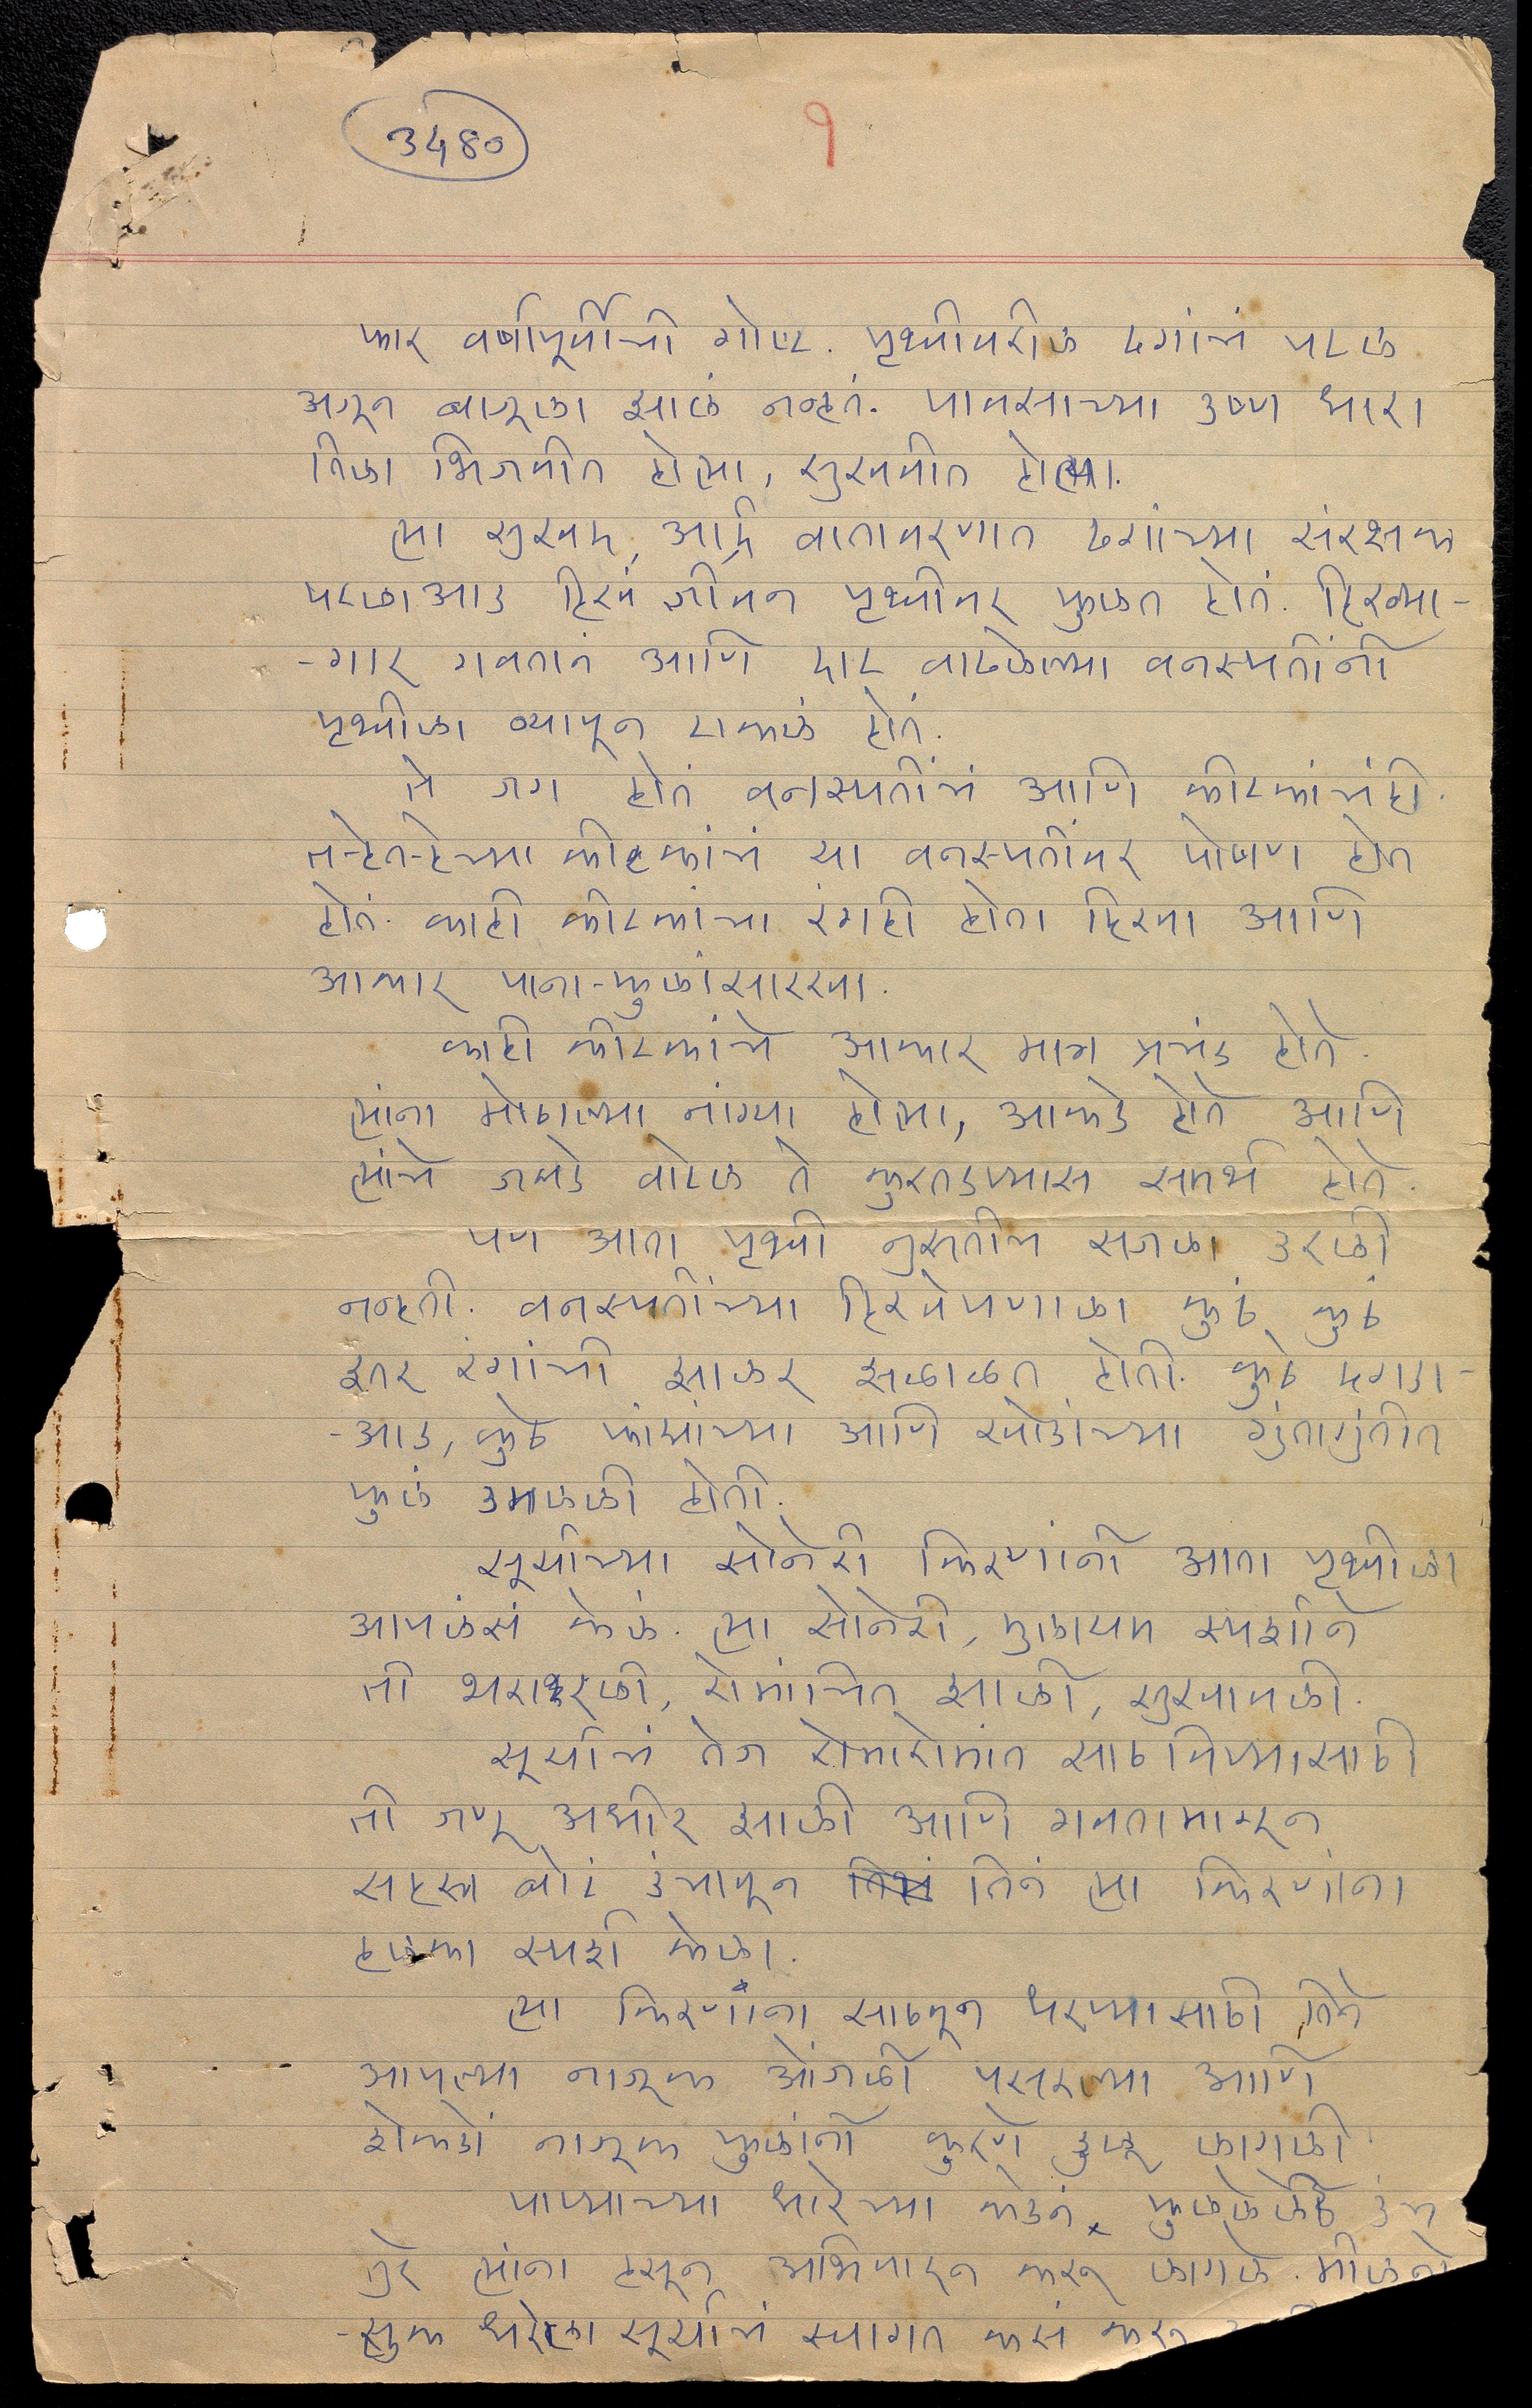 3480
१
फार वर्षापूर्वीची गोष्ट. पृथ्वीवरील ढगांचं पटल
अजून बाजूला झालं नव्हतं. पावसाच्या उष्ण धारा
तिला भिजवीत होत्या, सुखवीत होत्या.
त्या सुखद, आर्द्र वातावरणात ढगांच्या संरक्षक
पटलाआड हिरवं जीवन पृथ्वीवर फुलत होतं. हिरव्या-
-गार गवतानं आणि दाट वाढलेल्या वनस्पतींनी
पृथ्वीला व्यापून टाकलं होतं.
ते जग होतं वनस्पतींचं आणि कीटकांचंही.
तऱ्हेतऱ्हेच्या कीटकांचं या वनस्पतींवर पोषण होत
होतं. काही कीटकांचा रंगही होता हिरवा आणि
आकार पाना-फुलांसारखा.
काही कीटकांचे आकार मात्र प्रचंड होते.
त्यांना मोठाल्या नांग्या होत्या, आकडे होते आणि
त्यांचे जबडे वाटेल ते कुरतडण्यास समर्थ होते.
पण आता पृथ्वी नुसतीच सजला उरली
नव्हती. वनस्पतींच्या हिरवेपणाला कुठं कुठं
इतर रंगांची झालर झळाळत होती. कुठे दगडा-
-आड, कुठे फांद्यांच्या आणि खोडांच्या गुंतागुंतीत
फुलं उमलली होती.
सूर्याच्या सोनेरी किरणांनी आता पृथ्वीला
आपलंसं केलं. त्या सोनेरी, मुलायम स्पर्शाने
ती थरारली, रोमांचित झाली, सुखावली.
सूर्याचं तेज रोमारोमांत साठविण्यासाठी
ती जणू अधीर झाली आणि गवतामागून
सहस्त्र बोटं उंचावून तिनं त्या किरणांना
हलका स्पर्श केला.
त्या किरणांना साठवून धरण्यासाठी तिने
आपल्या नाजूक ओंजळी पसरल्या आणि
शेकडो नाजूक फुलांनी कुरणे फुलू लागली.
पाण्याच्या धारेच्या कडेनं फुललेले उंच
तुरे त्यांना हसून अभिवादन करू लागले.
धरेला सूर्याचं स्वागत कसं करू